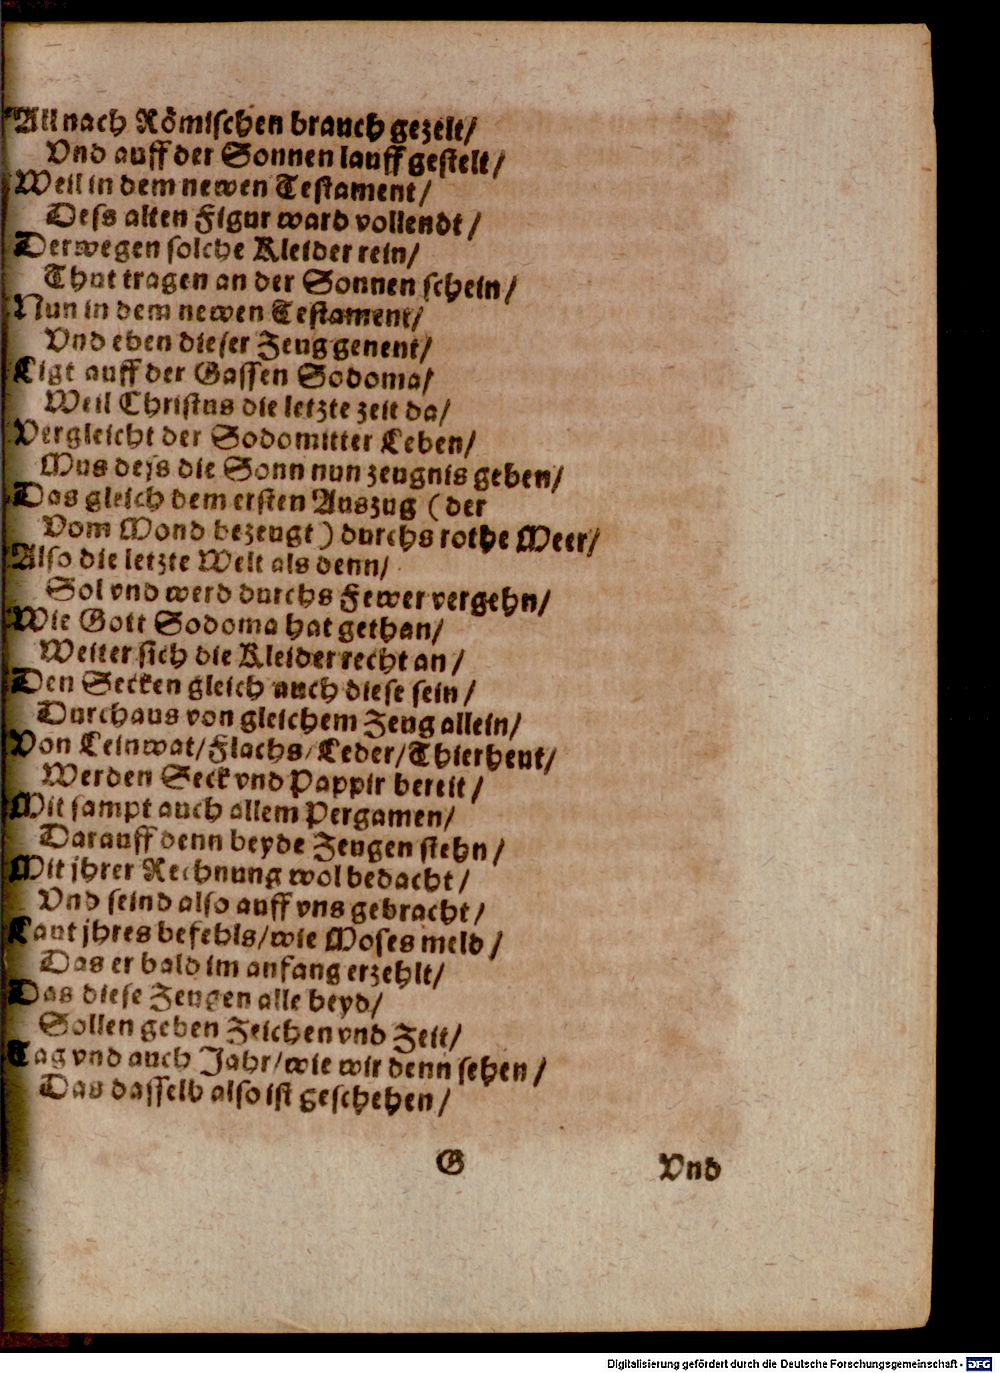 All nach Römischen brauch gezelt/
Vnd auff der Sonnen lauff gestelt/
Weil in dem newen Testament/
Dess alten Figur ward vollendt/
Derwegen solche Kleider rein/
Thut tragen an der Sonnen schein/
Nun in dem newen Testament/
Vnd eben dieser Zeug genent/
Ligt auff der Gassen Sodoma/
Weil Christus die letzte zeit da/
Vergleicht der Sodomitter Leben/
Mus dess die Sonn nun zeugnis geben/
Das gleich dem ersten Auszug (der
Vom Mond bezeugt) durchs rothe Meer/
Also die letzte Welt als denn/
Sol vnd werd durchs Fewer vergehn/
Wie Gott Sodoma hat gethan/
Weiter sich die Kleider recht an/
Den Secken gleich auch diese sein/
Durchaus von gleichem Zeug allein/
Von Leinwat/Flachs/Leder/Thierheut/
Werden Seck vnd Pappir bereit/
Mit sampt auch allem Pergamen/
Darauff denn beyde Zeugen stehn/
Mit jhrer Rechnung wol bedacht/
Vnd seind also auff vns gebracht/
Laut jhres befehls/wie Moses meld/
Das er bald im anfang erzehlt/
Das diese Zeugen alle beyd/
Sollen geben Zeichen vnd Zeit/
Tag vnd auch Jahr/wie wir denn sehen/
Das dasselb also ist geschehen/
G Vnd
Digitalisierung gefördert durch die Deutsche Forschungsgemeinschaft - DFG